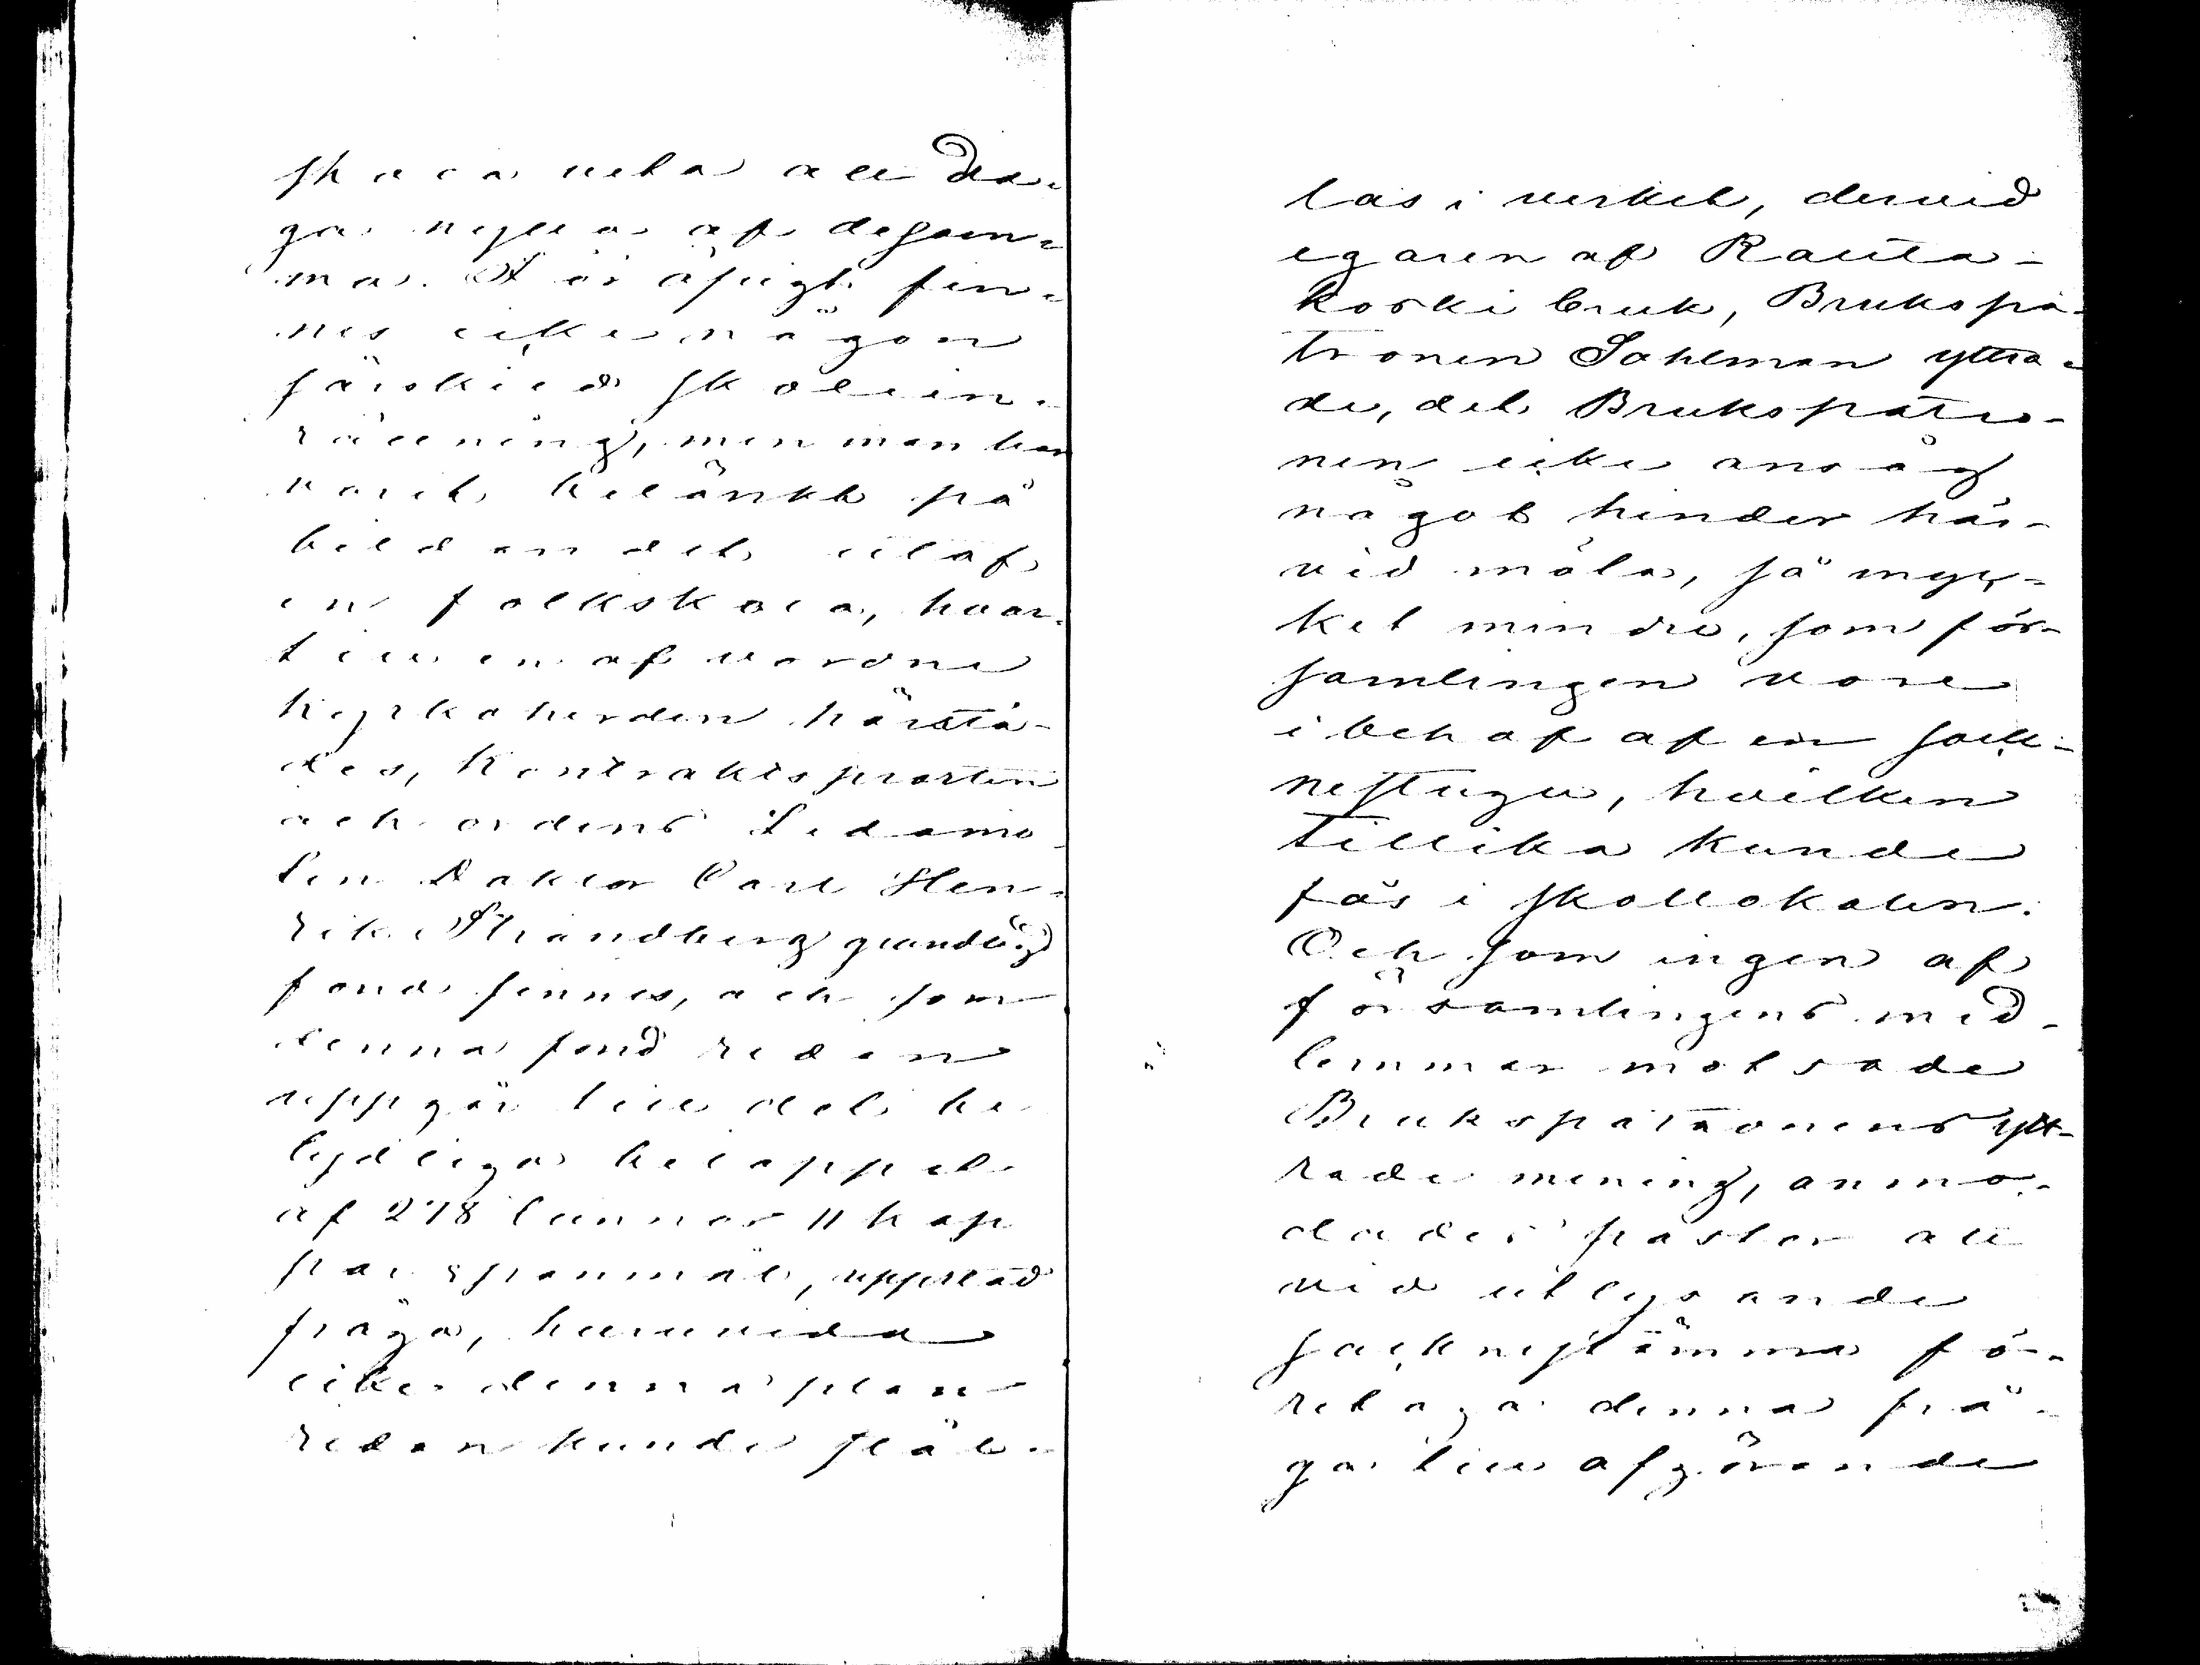 skola veta att dra-
ga nytta af desam-
ma. I öfrigt fin-
nes icke någon
särskild skolin-
rättning, men man har
varit betänkt på
bildandet utaf
en folkskola, hvar-
till en af vordne
kyrkoherden härstä-
des, Kontraktsprosten
och ordens Ledamo-
ten Doktor Carl Hen-
rik Strandberg grundlagd
fond finnes, och som
denna fond redan
uppgår till det be
tydliga beloppet
af 278 tunnor 11 kap
par spanmål, uppstod
fråga, huruvida
icke denna plan
redan kunde stäl-
las i verket, dervid
egaren af Rauta-
koski bruk, Brukspa-
tronen Sahlman yttra-
de, det Brukspatro-
nen icke ansåg
något hinder här-
vid möta, så myc-
ket mindre, som för-
samlingen vore
i behof af en sock-
nestuga, hvilken
tillika kunde
fås i skollokalen.
Och som ingen af
församlingens med-
lemmar motsade
Brukspatronens ytt-
rade mening, anmo-
dades pastor att
vid utlysande
socknestämma fö-
retaga denna frå-
ga till afgörande